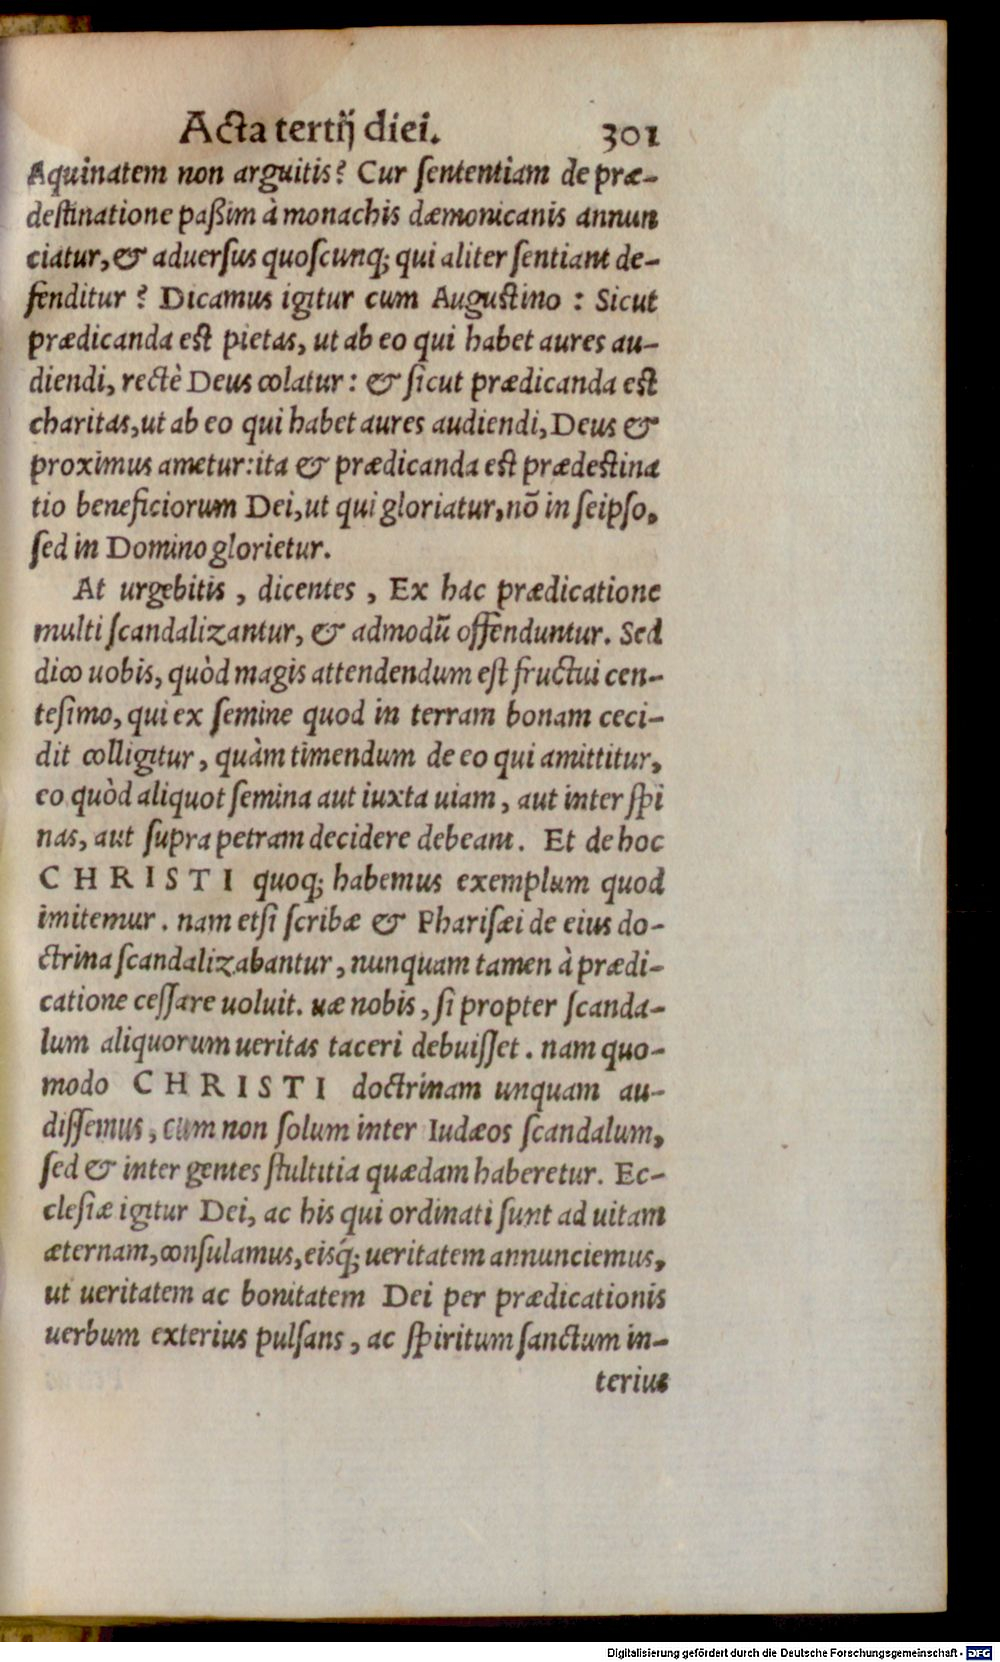 Acta tertij diei. 301
Aquinatem non arguitis? Cur ſententiam de præ-
deſtinatione paßim à monachis dæmonicanis annun
ciatur, & aduerſus quoſcunq; qui aliter ſentiant de-
fenditur? Dicamus igitur cum Auguſtino: Sicut
prædicanda eſt pietas, ut ab eo qui habet aures au-
diendi, rectè Deus colatur: & ſicut prædicanda eſt
charitas, ut ab eo qui habet aures audiendi, Deus &
proximus ametur: ita & prædicanda eſt prædeſtina
tio beneficiorum Dei, ut qui gloriatur, nõ in ſeipſo,
ſed in Domino glorietur.
At urgebitis, dicentes, Ex hac prædicatione
multi ſcandalizantur, & admodũ offenduntur. Sed
dico uobis, quòd magis attendendum eſt fructui cen-
teſimo, qui ex ſemine quod in terram bonam ceci-
dit colligitur, quàm timendum de eo qui amittitur,
eo quòd aliquot ſemina aut iuxta uiam, aut inter ſpi
nas, aut ſupra petram decidere debeant. Et de hoc
CHRISTI quoq; habemus exemplum quod
imitemur. nam etſi ſcribæ & Phariſæi de eius do-
ctrina ſcandalizabantur, nunquam tamen à prædi-
catione ceſſare uoluit. uæ nobis, ſi propter ſcanda-
lum aliquorum ueritas taceri debuiſſet. nam quo-
modo CHRISTI doctrinam unquam au-
diſſemus, cum non ſolum inter Iudæos ſcandalum,
ſed & inter gentes ſtultitia quædam haberetur. Ec-
cleſiæ igitur Dei, ac his qui ordinati ſunt ad uitam
æternam, conſulamus, eisq́; ueritatem annunciemus,
ut ueritatem ac bonitatem Dei per prædicationis
uerbum exterius pulſans, ac ſpiritum ſanctum in-
terius
Digitalisierung gefördert durch die Deutsche Forschungsgemeinschaft - DFG